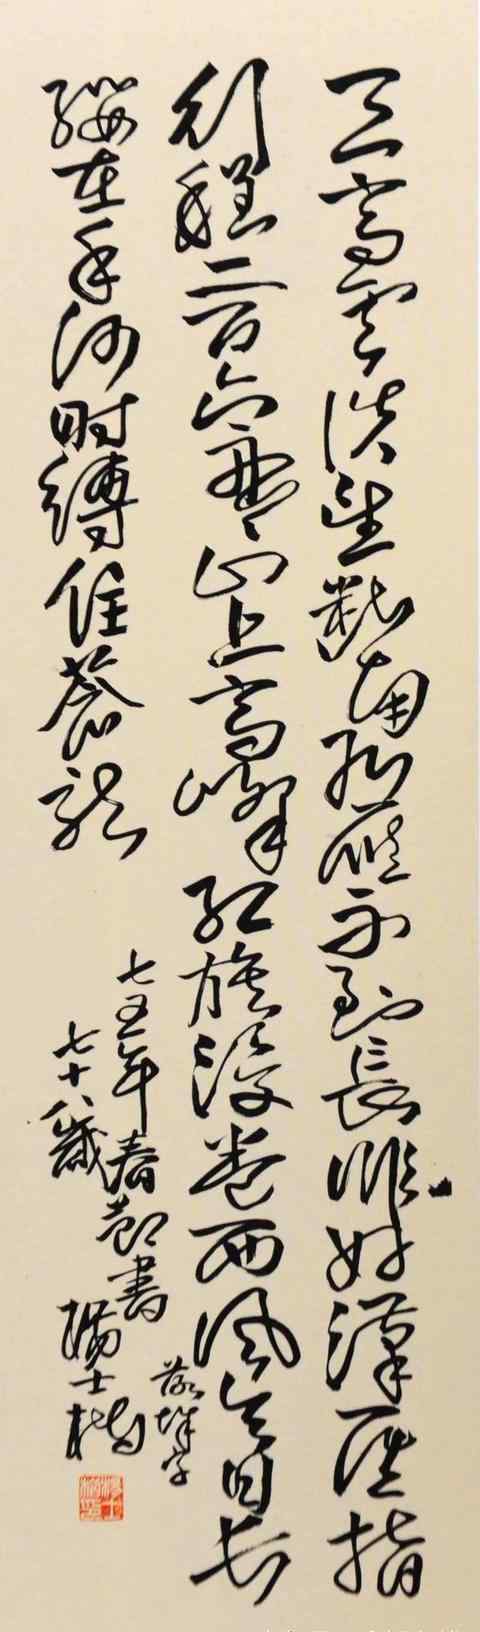 天高雲淡望斷南飛雁不到長非好漢屈指
行程二万六盤山上高峰紅旗漫卷西風今日长
纓在手何时縛住蒼龍
落城字
七五年春節書
七十八歲 楊士楠